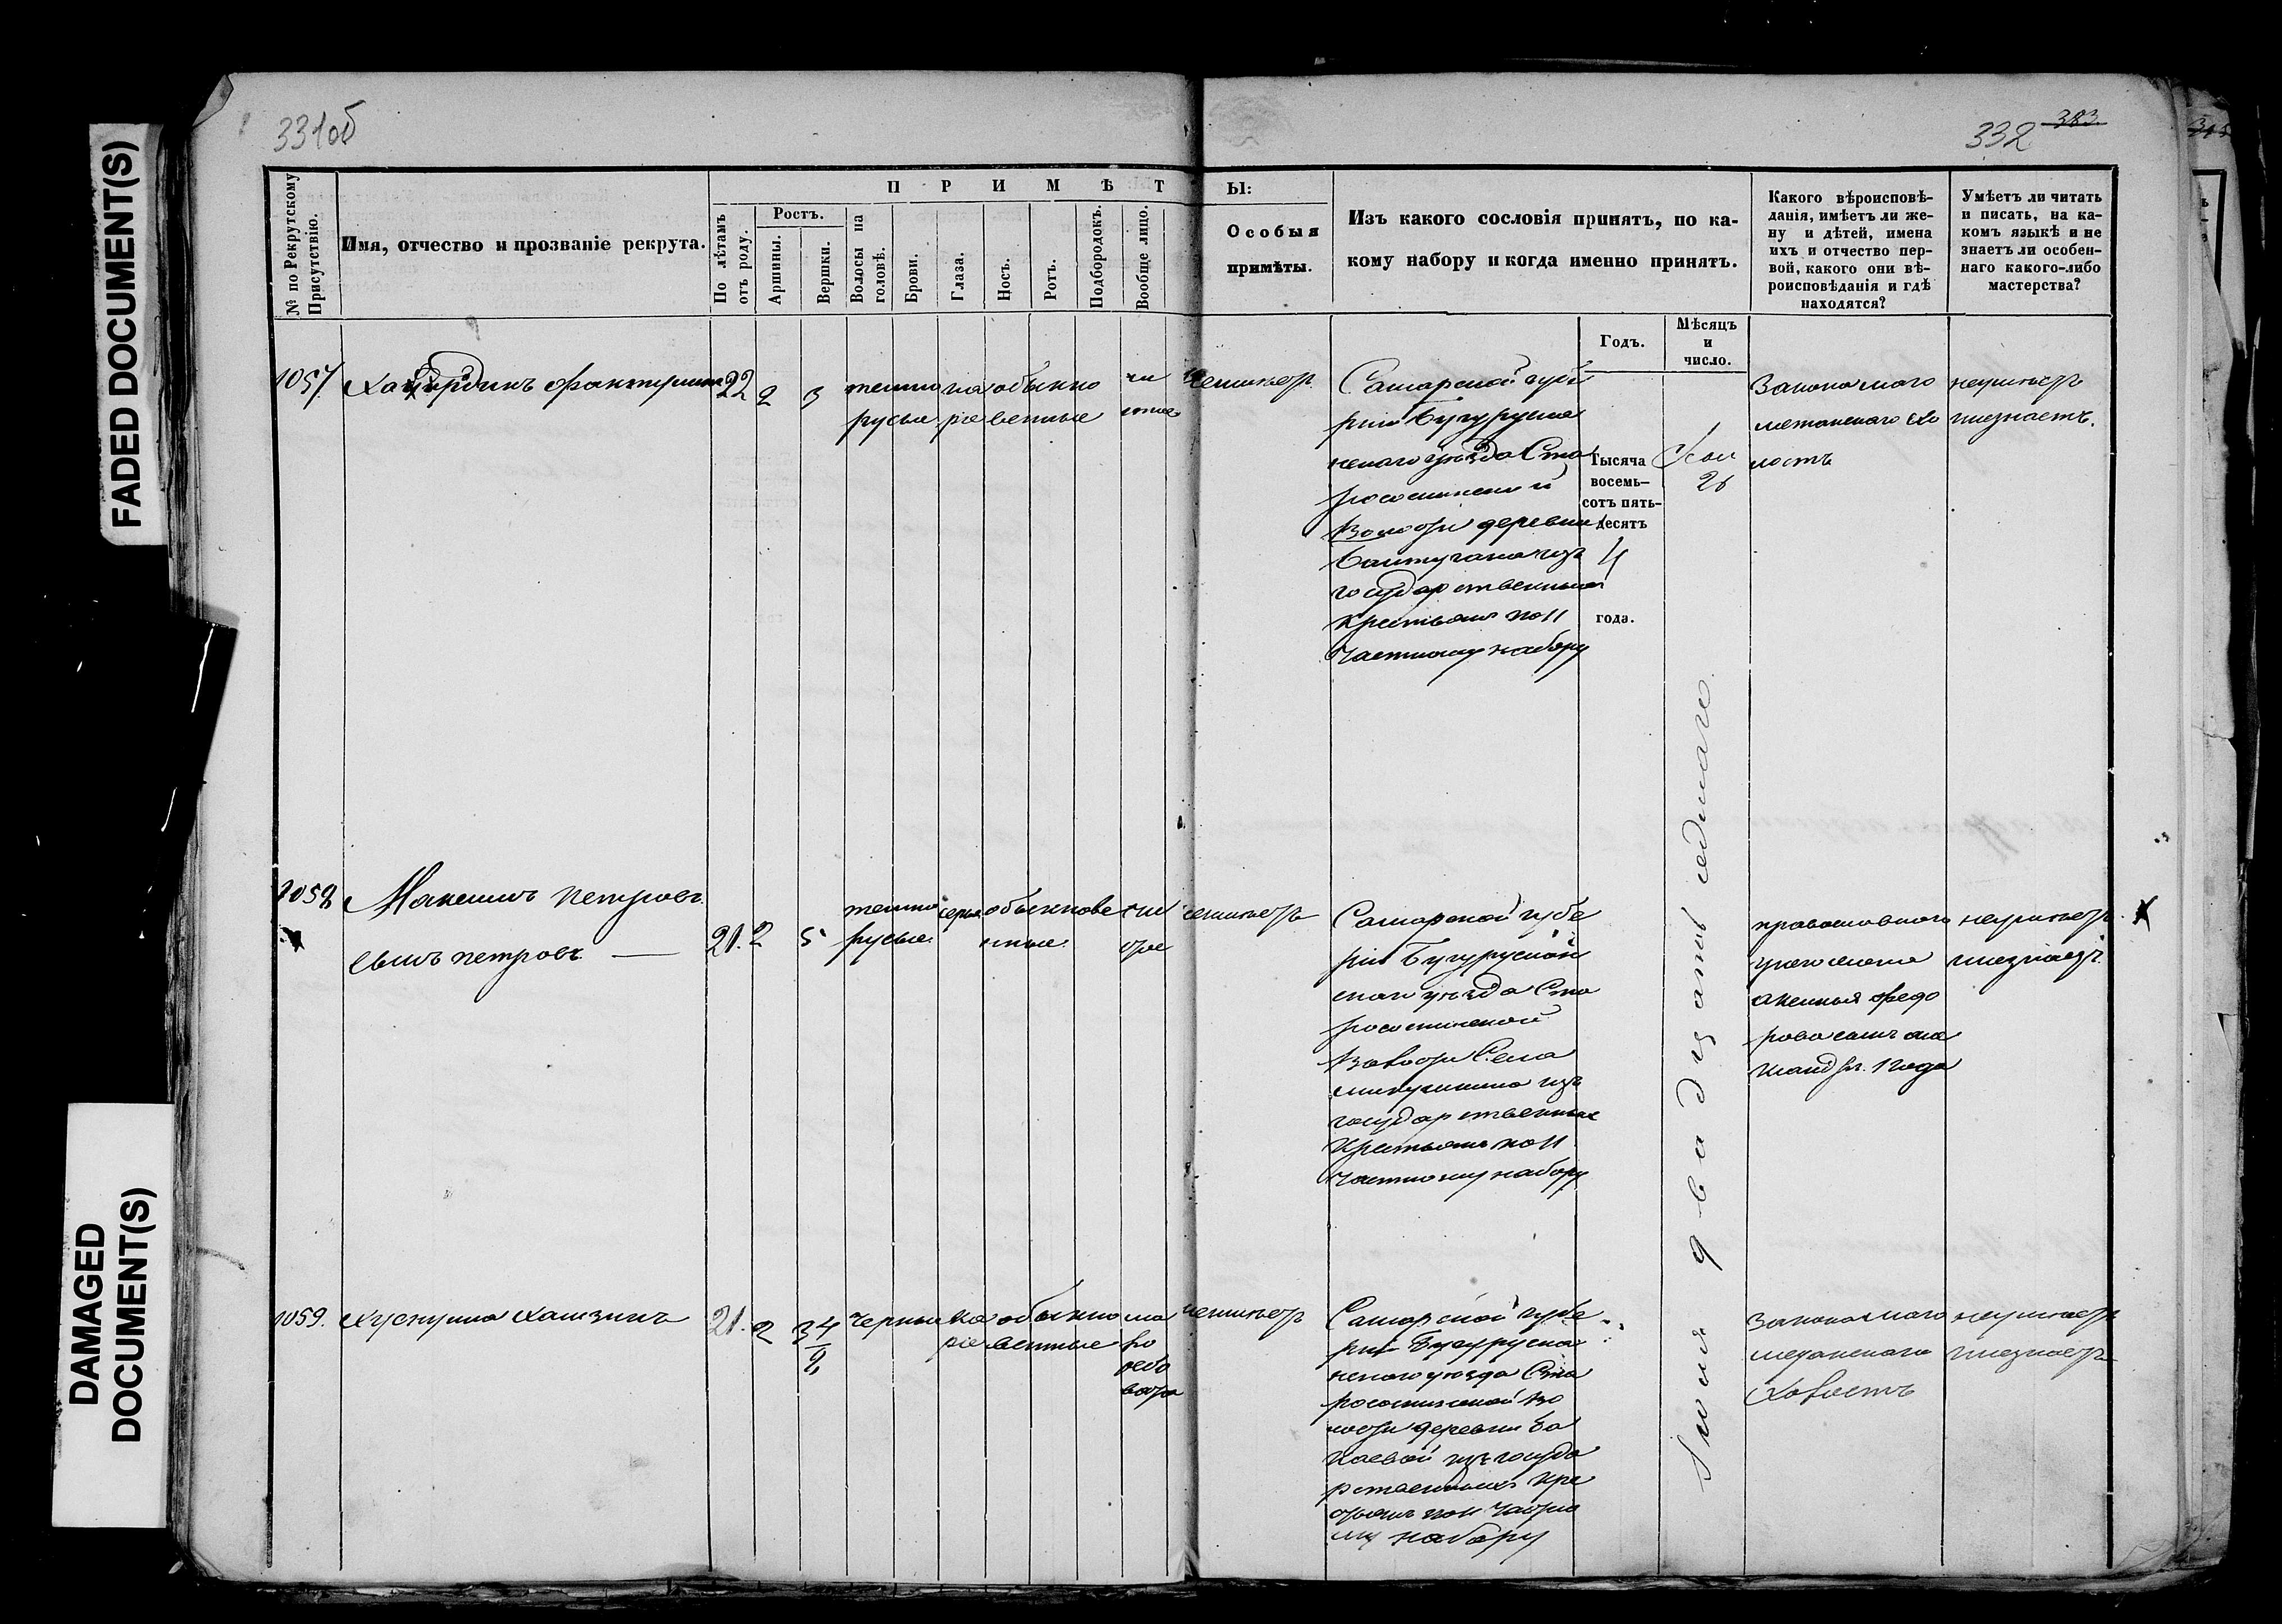 FADED DOCUMENT(S)
DAMAGED
DOCUMENT(S)
331об
332 383.
П Р И М Ѣ Т Ы:
№ по Рекрутскому
Присутствію.
Имя, отчество и прозваніе рекрута.
По лѣтамъ
отъ роду.
Ростъ.
Аршины.
Вершки.
Волосы на
головѣ.
Брови.
Глаза.
Носъ.
Ротъ.
Подбородокъ.
Вообще лицо.
Особыя
примѣты.
Изъ какого сословія принятъ, по ка-
кому набору и когда именно принятъ.
Годъ.
Мѣсяцъ
и
число.
Какого вѣроисповѣ-
данія, имѣетъ ли же-
ну и дѣтей, имена
ихъ и отчество пер-
вой, какого они вѣ-
роисповѣданія и гдѣ
находятся?
Умѣетъ ли читать
и писать, на ка-
комъ языкѣ и не
знаетъ ли особен-
наго какого-либо
мастерства?
1057.
22 2 3
темно
русые
ка
ріе
обыкно
венные
чи
стое
неимѣетъ
Самарской губе
рніи Бугурусла
нскаго уѣзда Ста
рососнинской
Волости деревни
Байтугана изъ
государственныхъ
крестьянъ по 11
Частному набору
Тысяча
восемь-
сотъ пять-
десятъ
4
года.
26
Закона маго
метанскаго Хо
лостъ
неумѣетъ
инезнаетъ.
1058
Максимъ Петровъ
сынъ Петровъ —
21. 2 5
темно
русые.
серые
обыкнове
нные.
чис
тое
неимѣетъ
Самарской губе
рніи Бугуруслан
скаго уѣзда Ста
рососнинской
Волости Села
Микушкина изъ
государственныхъ
Крестьянъ по 11
частному набору
православнаго
у него жена
Аксинья Федо
рова сынъ Але
ксандръ. 1 года
неумѣетъ
инезнаетъ.
1059.
21. 2 3 4/8
Черные
ка
ріе
обыкно
венные
ша
ро
вато
неимѣетъ
Самарской губе
рніи Бугурусла
нскаго уѣзда Ста
рососнинской Во
лости деревни Ба
каевой изъ госуда
рственныхъ кре
стьянъ по 11 Частно
му набору
Закона маго
метанскаго
Холостъ
неумѣетъ
инезнаетъ
двадцать седмаго.